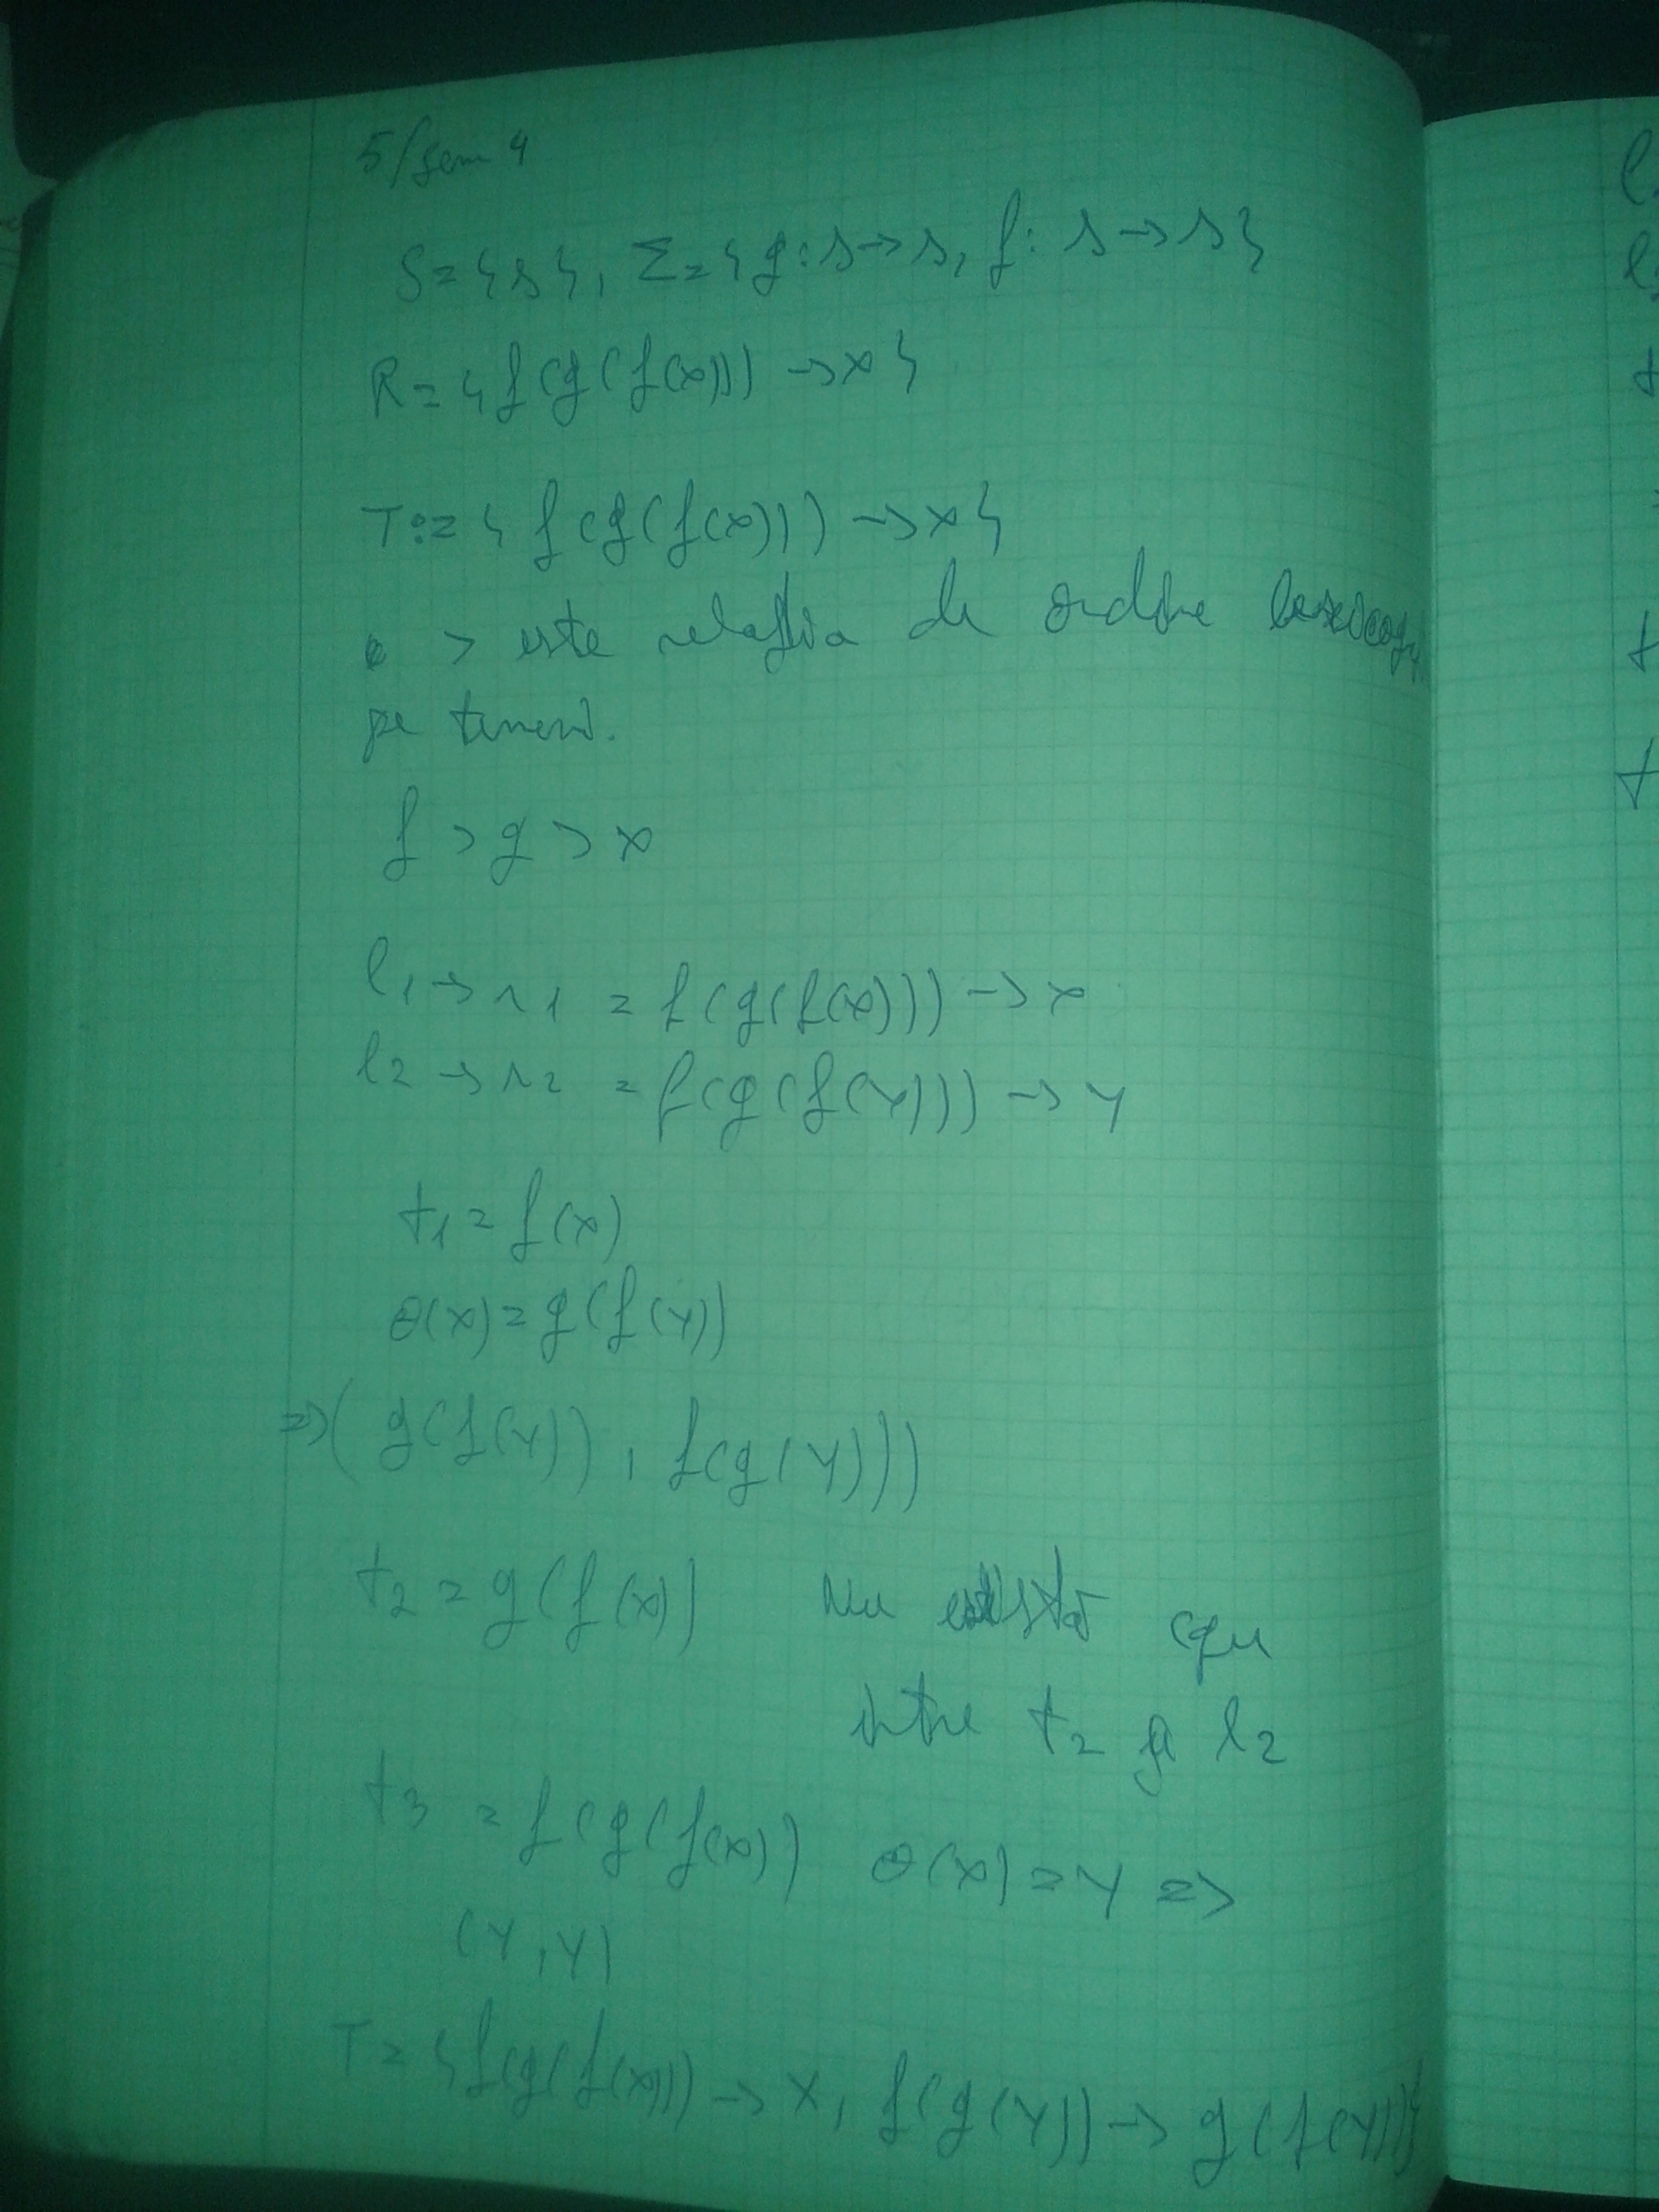 5/sem 4
S = {s}, Σ = {g: s → s, f: s → s}
R = {f(g(f(x))) → x}
T := {f(g(f(x))) → x}
> este relația de ordine
pe termeni.
f > g > x
l1 → r1 = f(g(f(x))) → x
l2 → r2 = f(g(f(y))) → y
t1 = f(x)
θ(x) = g(f(y))
⇒ (g(f(y)), f(g(y)))
t2 = g(f(x)) nu există cgu
între t2 și l2
t3 = f(g(f(x)) θ(x) = y ⇒
(y, y)
T = {f(g(f(x))) → x, f(g(y)) → g(f(y))}
l
l
t
t
t